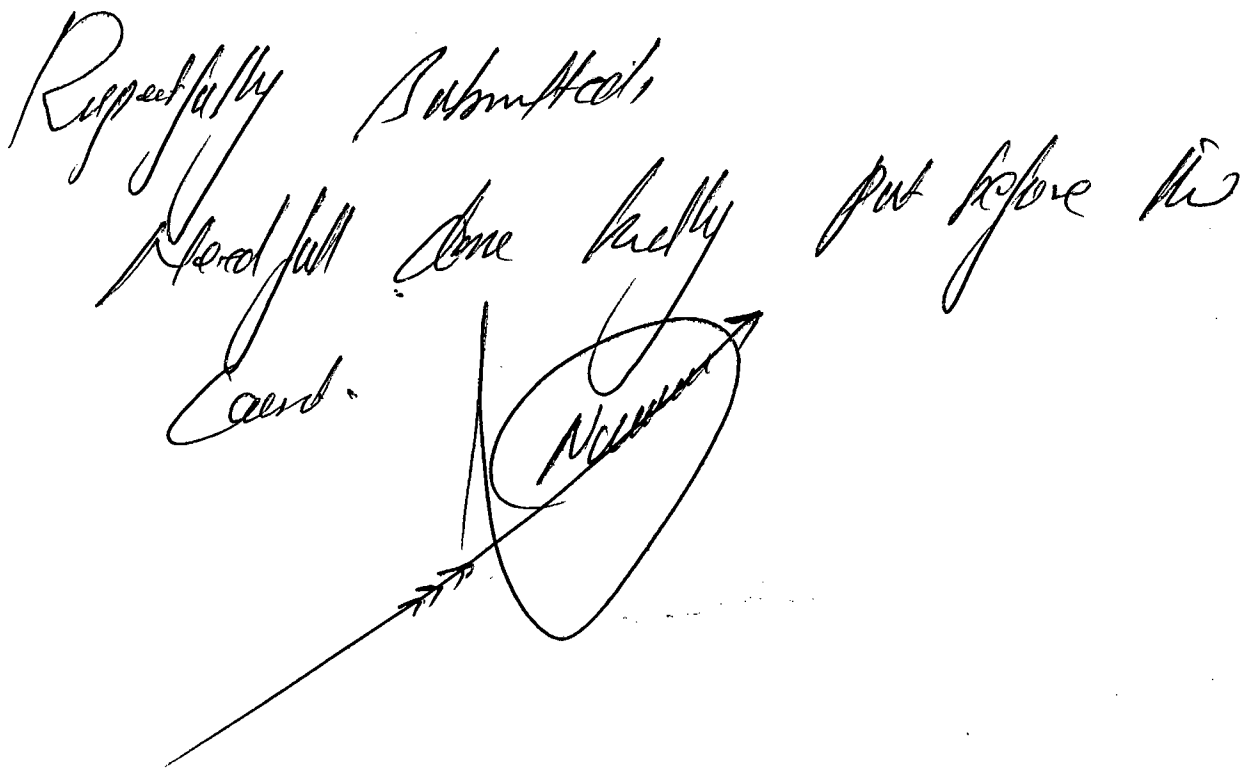 Respectfully Submitted,
Need full done kindly put before the
Court.